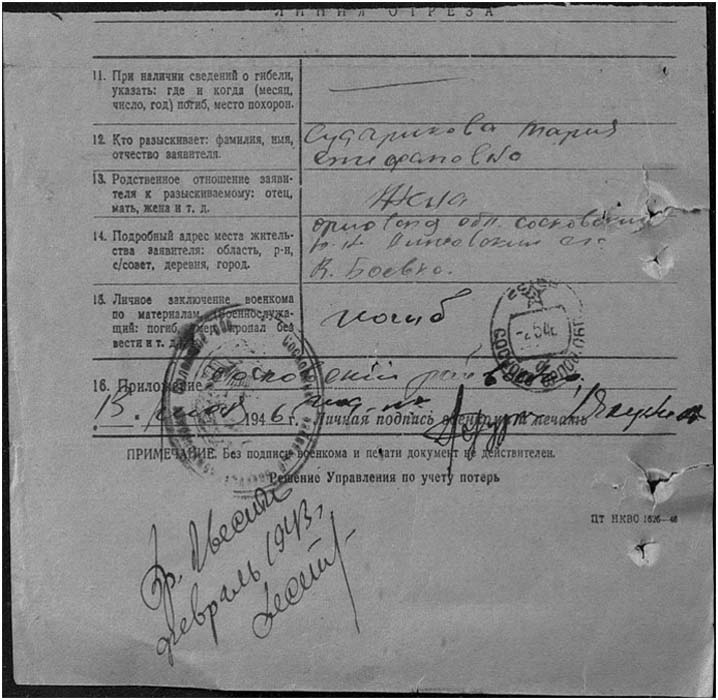 ЛИНИЯ ОТРЕЗА
11. При наличии сведений о гибели,
указать: где и когда (месяц,
число, год) погиб, место похорон.
12. Кто разыскивает: фамилия, имя,
отчество заявителя.
Сударикова Мария
13. Родственное отношение заяви-
теля к разыскиваемому: отец,
мать, жена и т. д.
Жена
14. Подробный адрес места житель-
ства заявителя: область, р-н,
с/совет, деревня, город.
Орловская обл. Сосковский
р-н
15. Личное заключение военкома
по материалам (военнослужа-
щий: погиб, умер, пропал без
вести и т. д.)
погиб
16. Приложение
194 6 г. Личная подпись военкома и печать
ПРИМЕЧАНИЕ. Без подписи военкома и печати документ не действителен.
Решение Управления по учету потерь
ЦТ НКВО 1626—46
февраль 1943 г.